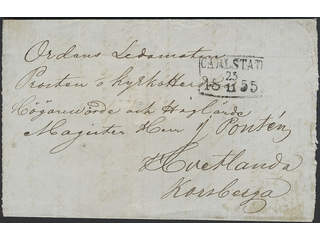 Ordens Ledamoten
Prosten o Kyrkoherden
Högärevörde och Höglärde
Magister Herr J Pontén
Hvetlanda
Korsberga
CARLSTAD
23
18 11 55